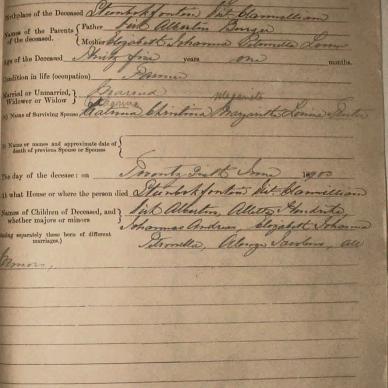 Birthplace of the Deceased Steinbokfontein Dist Clanwilliam
Names of the Parents of the deceased. { Father Dirk Albertus Burger
Mother Elizabeth Johanna Petronella Louw
Age of the Deceased Thirty five years one months.
Condition in life (occupation) Farmer
Married or Unmarried, Widower or Widow } Married
Name of Surviving Spouse Christina Margaretha
Name or names and approximate date of death of previous Spouse or Spouses
The day of the decease: on June 190
At what House or where the person died Steinbokfontein Dist Clanwilliam
Names of Children of Deceased, and whether majors or minors } Dirk Albertus, Aletta Hendrika
Johannes Andries, Elizabeth Johanna
(stating separately those born of different marriages.)
Petronella, all
minors,